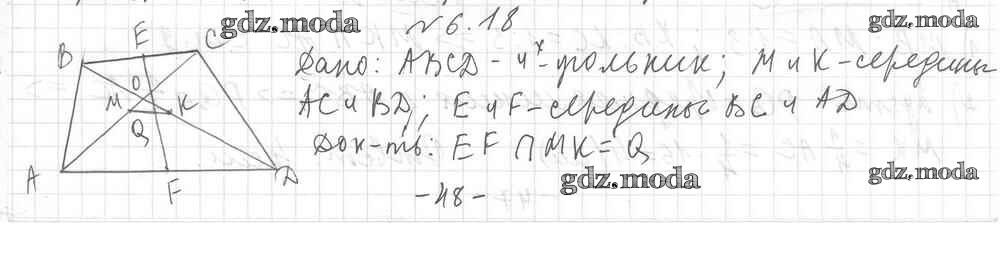 gdz.moda
№ 6.18
gdz.moda
B E C
Дано: ABCD - 4х-угольник; M и K - середины
O
M K
AC и BD; E и F - середины BC и AD
Q
Док-ть: EF ∩ MK = Q
A F D
gdz.moda
gdz.moda
- 48 -